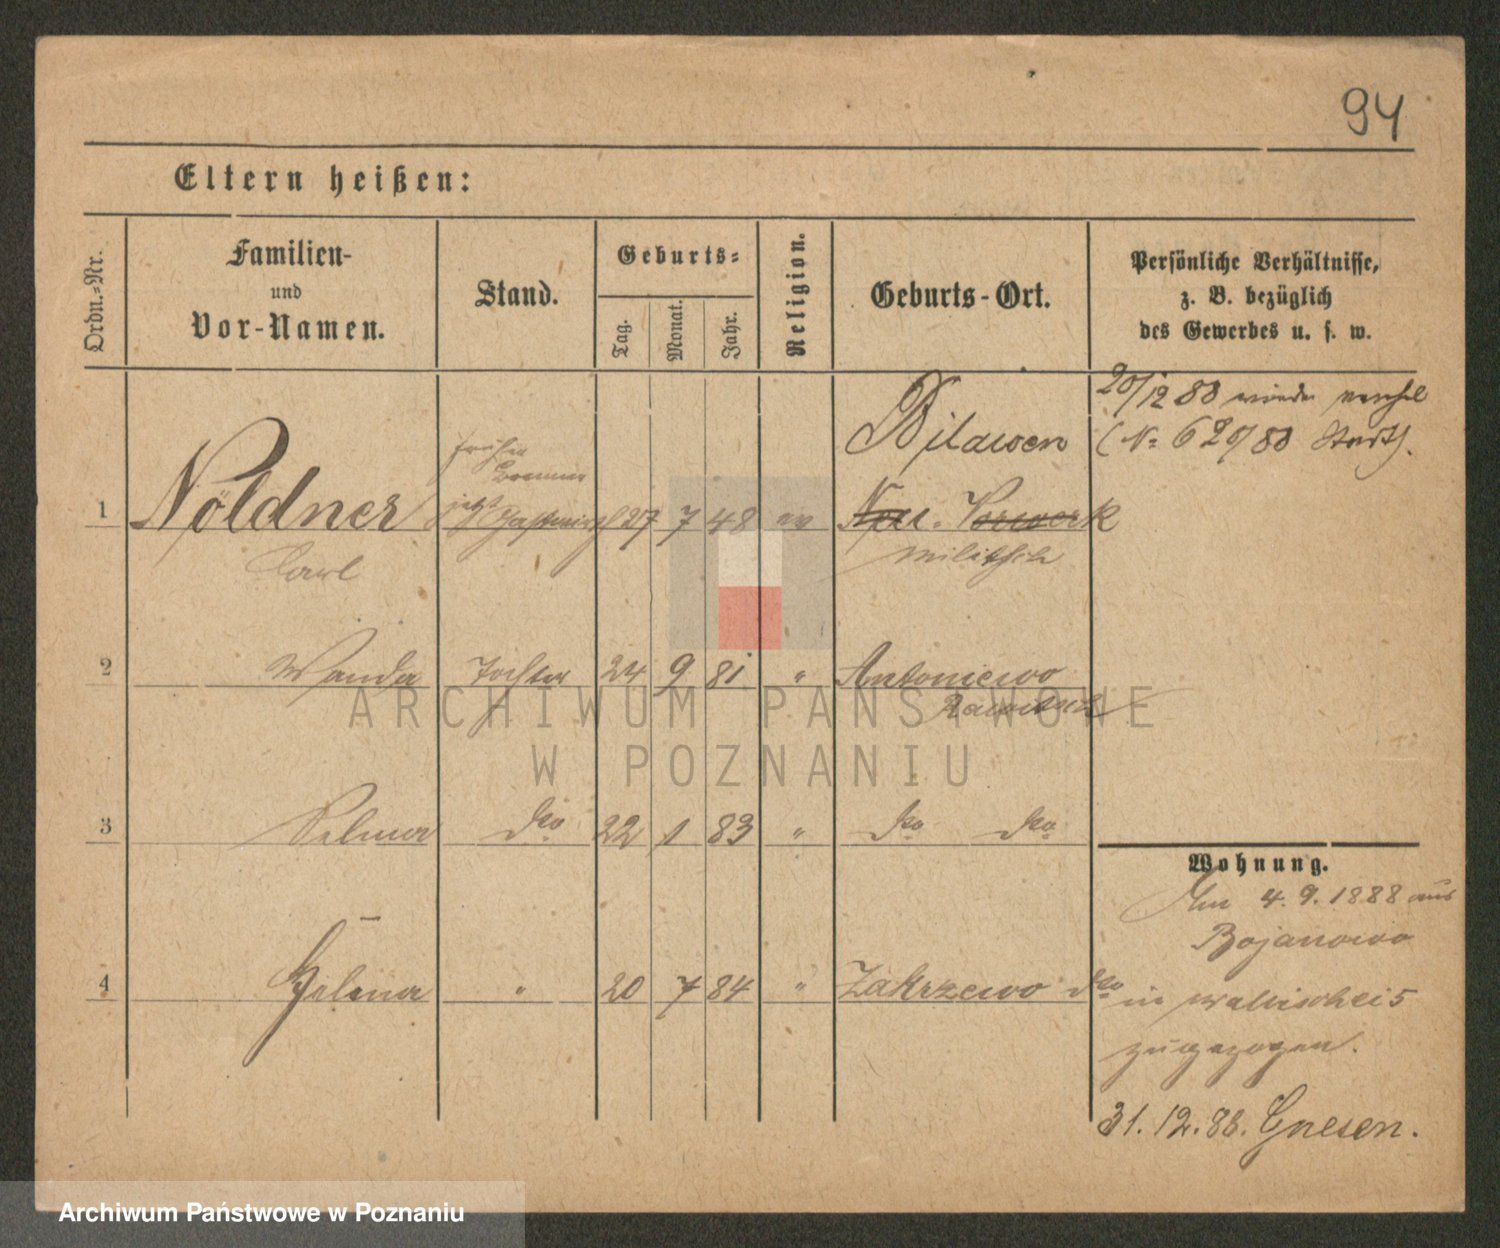 94
Eltern heißen:
Ordn.-Nr.
Familien-
und
Vor-Namen.
Stand.
Geburts-
Tag.
Monat.
Jahr.
Religion.
Geburts-Ort.
Persönliche Verhältnisse,
z. B. bezüglich
des Gewerbes u. s. w.
20/12 88 wieder
(No 620/88
Bilawen
früher
jetzt
1 Nöldner 27 7 48 ev Neu-Vorwerk
Carl Militsch
2 Wanda Tochter 24 9 81 " Antoniewo
Rawitsch
3 Selma do 22 1 83 " do do
4 Helena " 20 7 84 " Zakrzewo do
Wohnung.
Am 4. 9. 1888 aus
Bojanowo
in Wallischei 5
zugezogen.
31.12.88. Gnesen.
ARCHIWUM PAŃSTWOWE
W POZNANIU
Archiwum Państwowe w Poznaniu